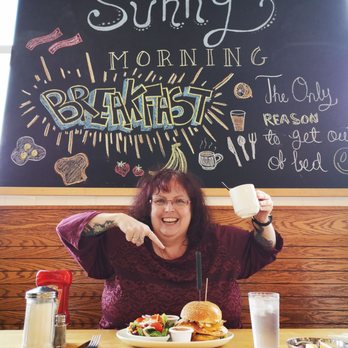 Sunny
MORNING
BREAKFAST
The Only
REASON
to get out
of bed